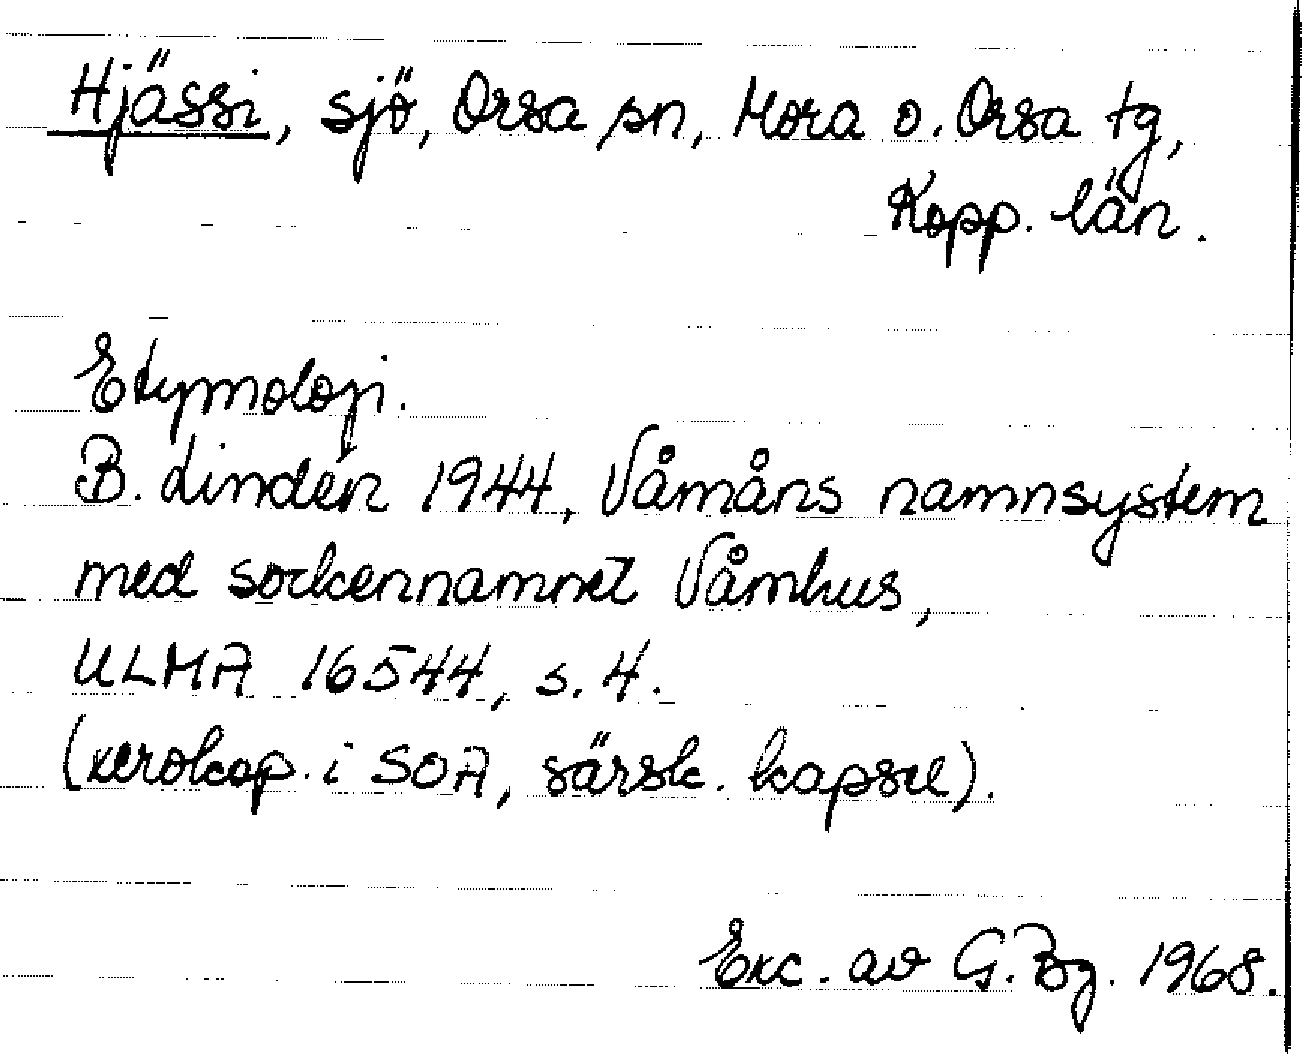 Hjässi, sjö, Orsa sn, Mora o. Orsa tg,
Kopp. län.
Etymologi.
B. Lindén 1944, Våmåns namnsystem
med sockennamnet Våmhus,
ULMA 16544, s. 4.
(xerokop. i SOA, särsk. kapsel).
Exc. av G. Bg. 1968.